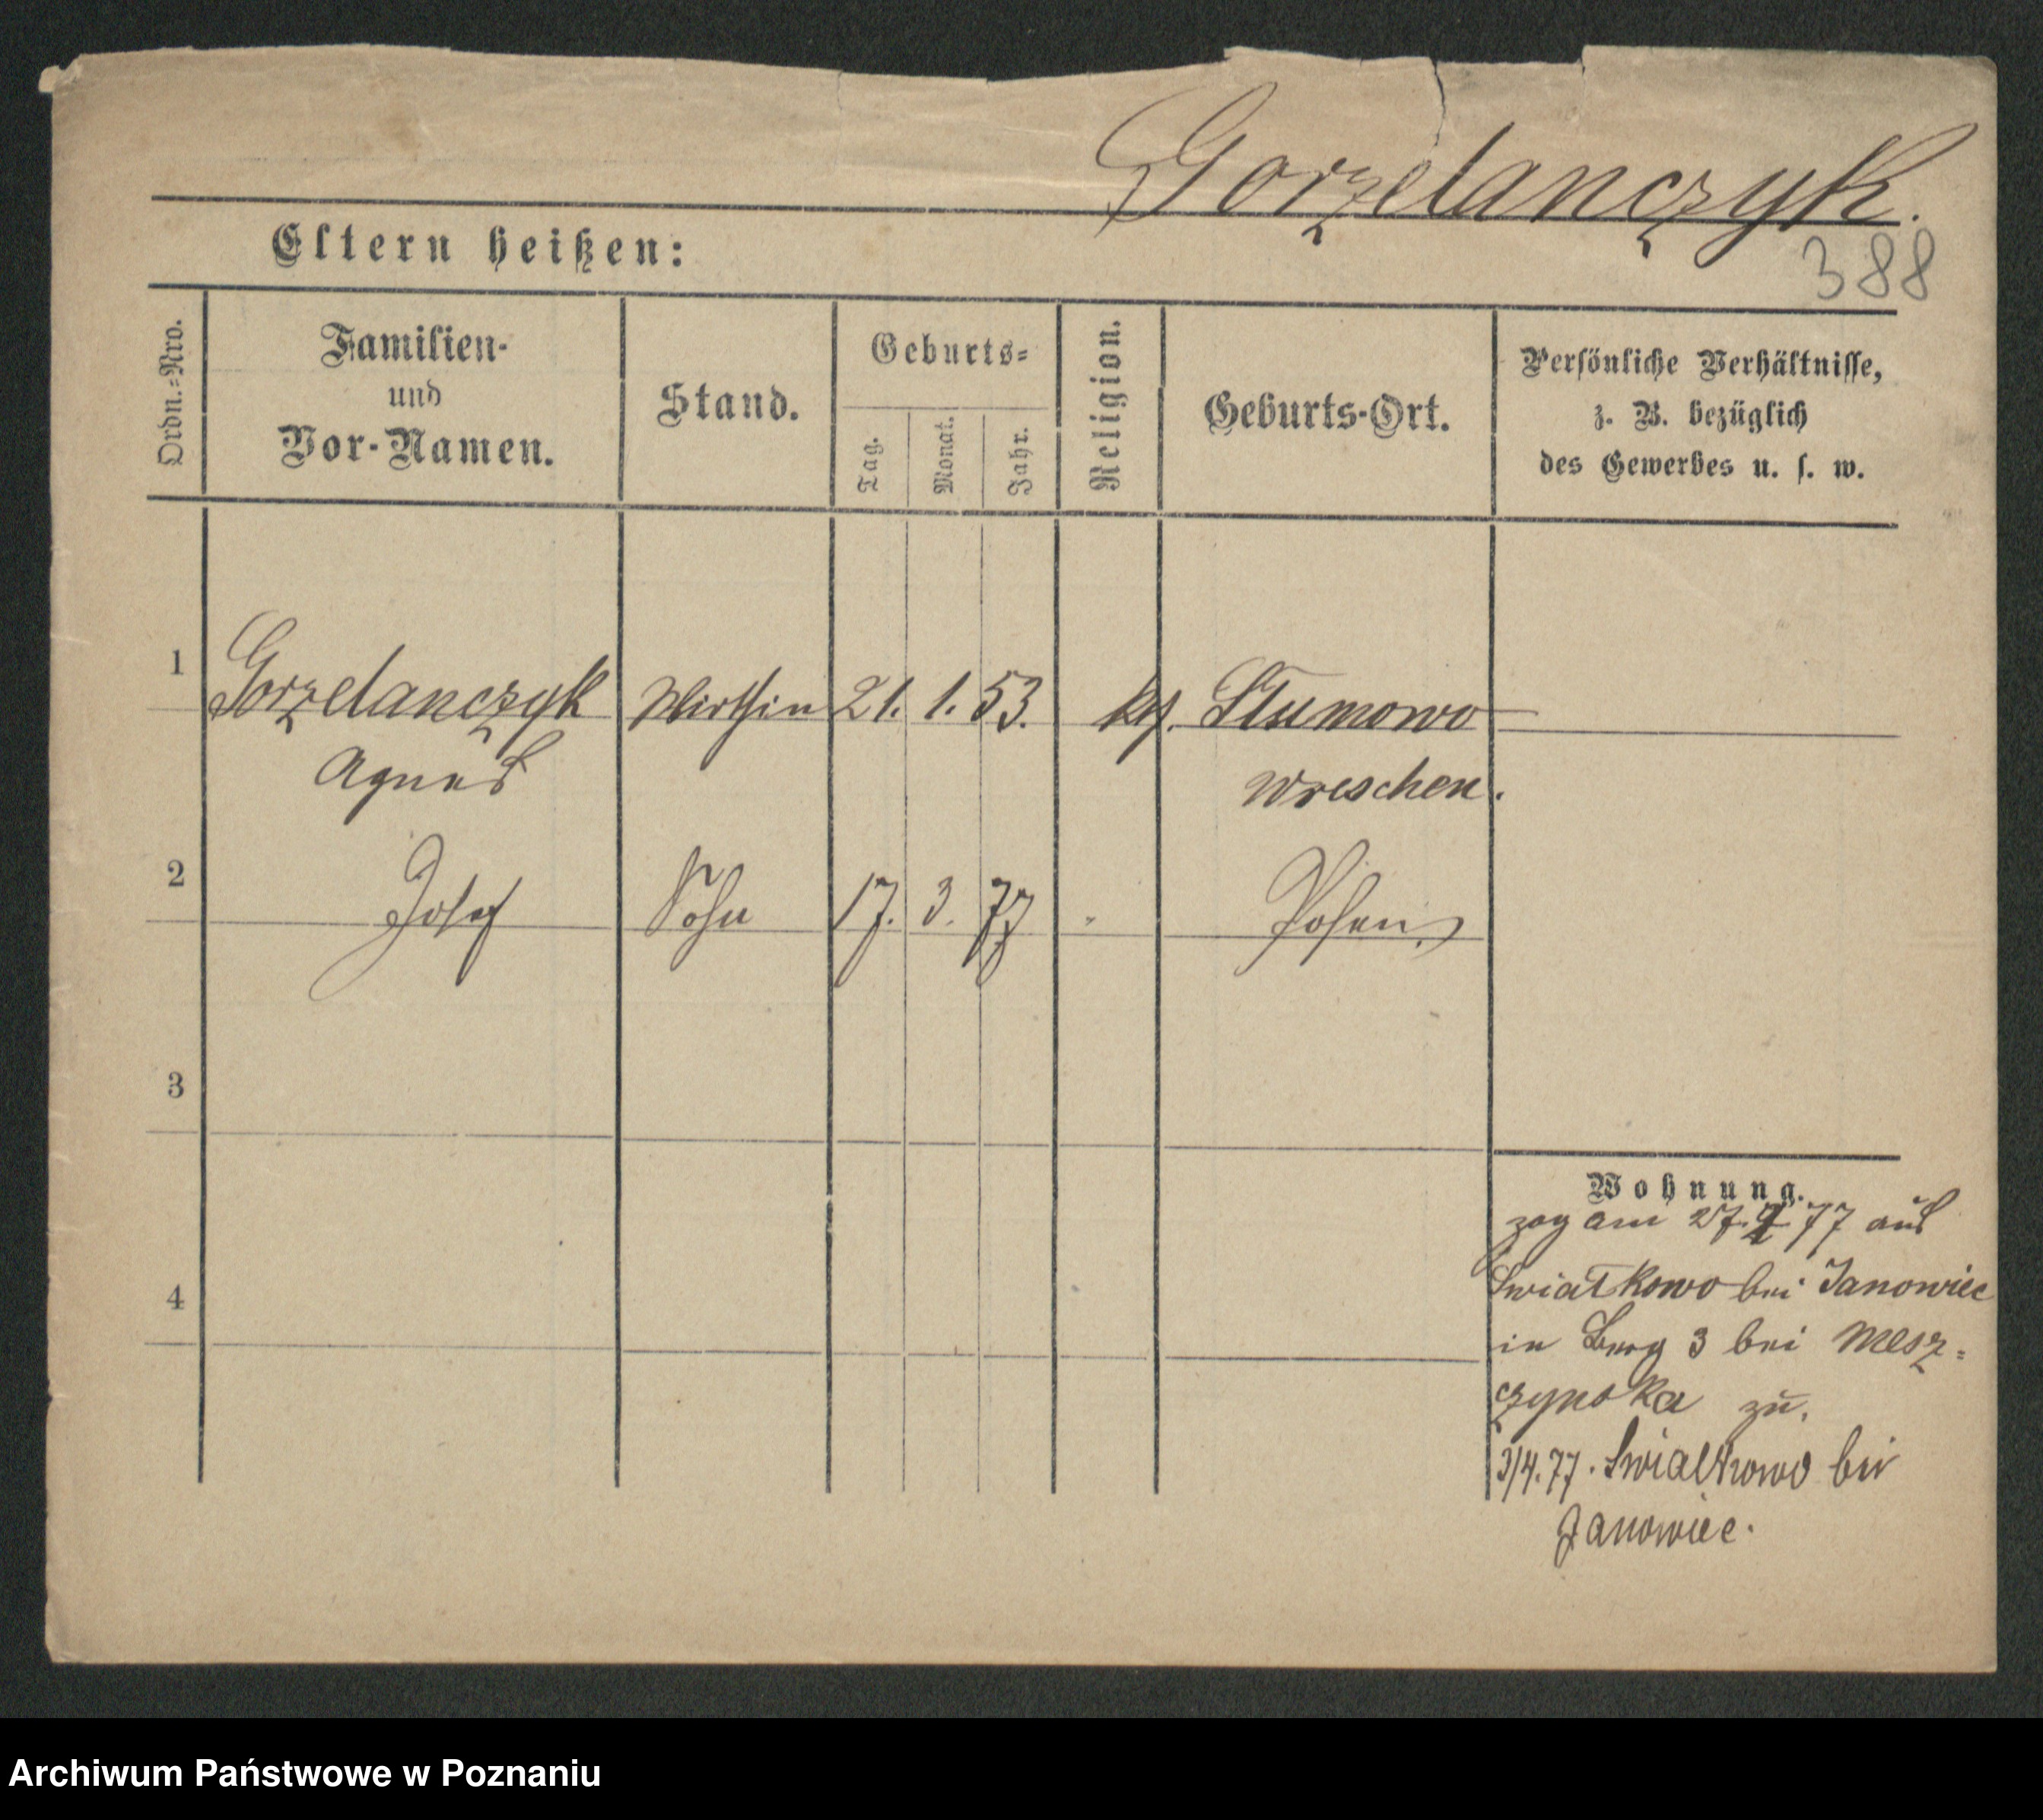 Gorzelanczyk.
388
Eltern heißen:
Ordn.=Nro.
Familien-
und
Vor-Namen.
Stand.
Geburts=
Tag.
Monat.
Jahr.
Religion.
Geburts-Ort.
Persönliche Verhältnisse,
z. B. bezüglich
des Gewerbes u. s. w.
1 Gorzelanczyk Wirthin 21. 1. 53. kth. Stumowo
Agnes Wreschen.
2 Josef Sohn 17. 3. 77 " Posen
3
4
Wohnung.
zog am 27. 77 aus
Swiatkowo bei Janowiec
in Berg 3 bei Mesz=
czynska zu.
3/4. 77. Swiatkowo bei
Janowiec.
Archiwum Państwowe w Poznaniu